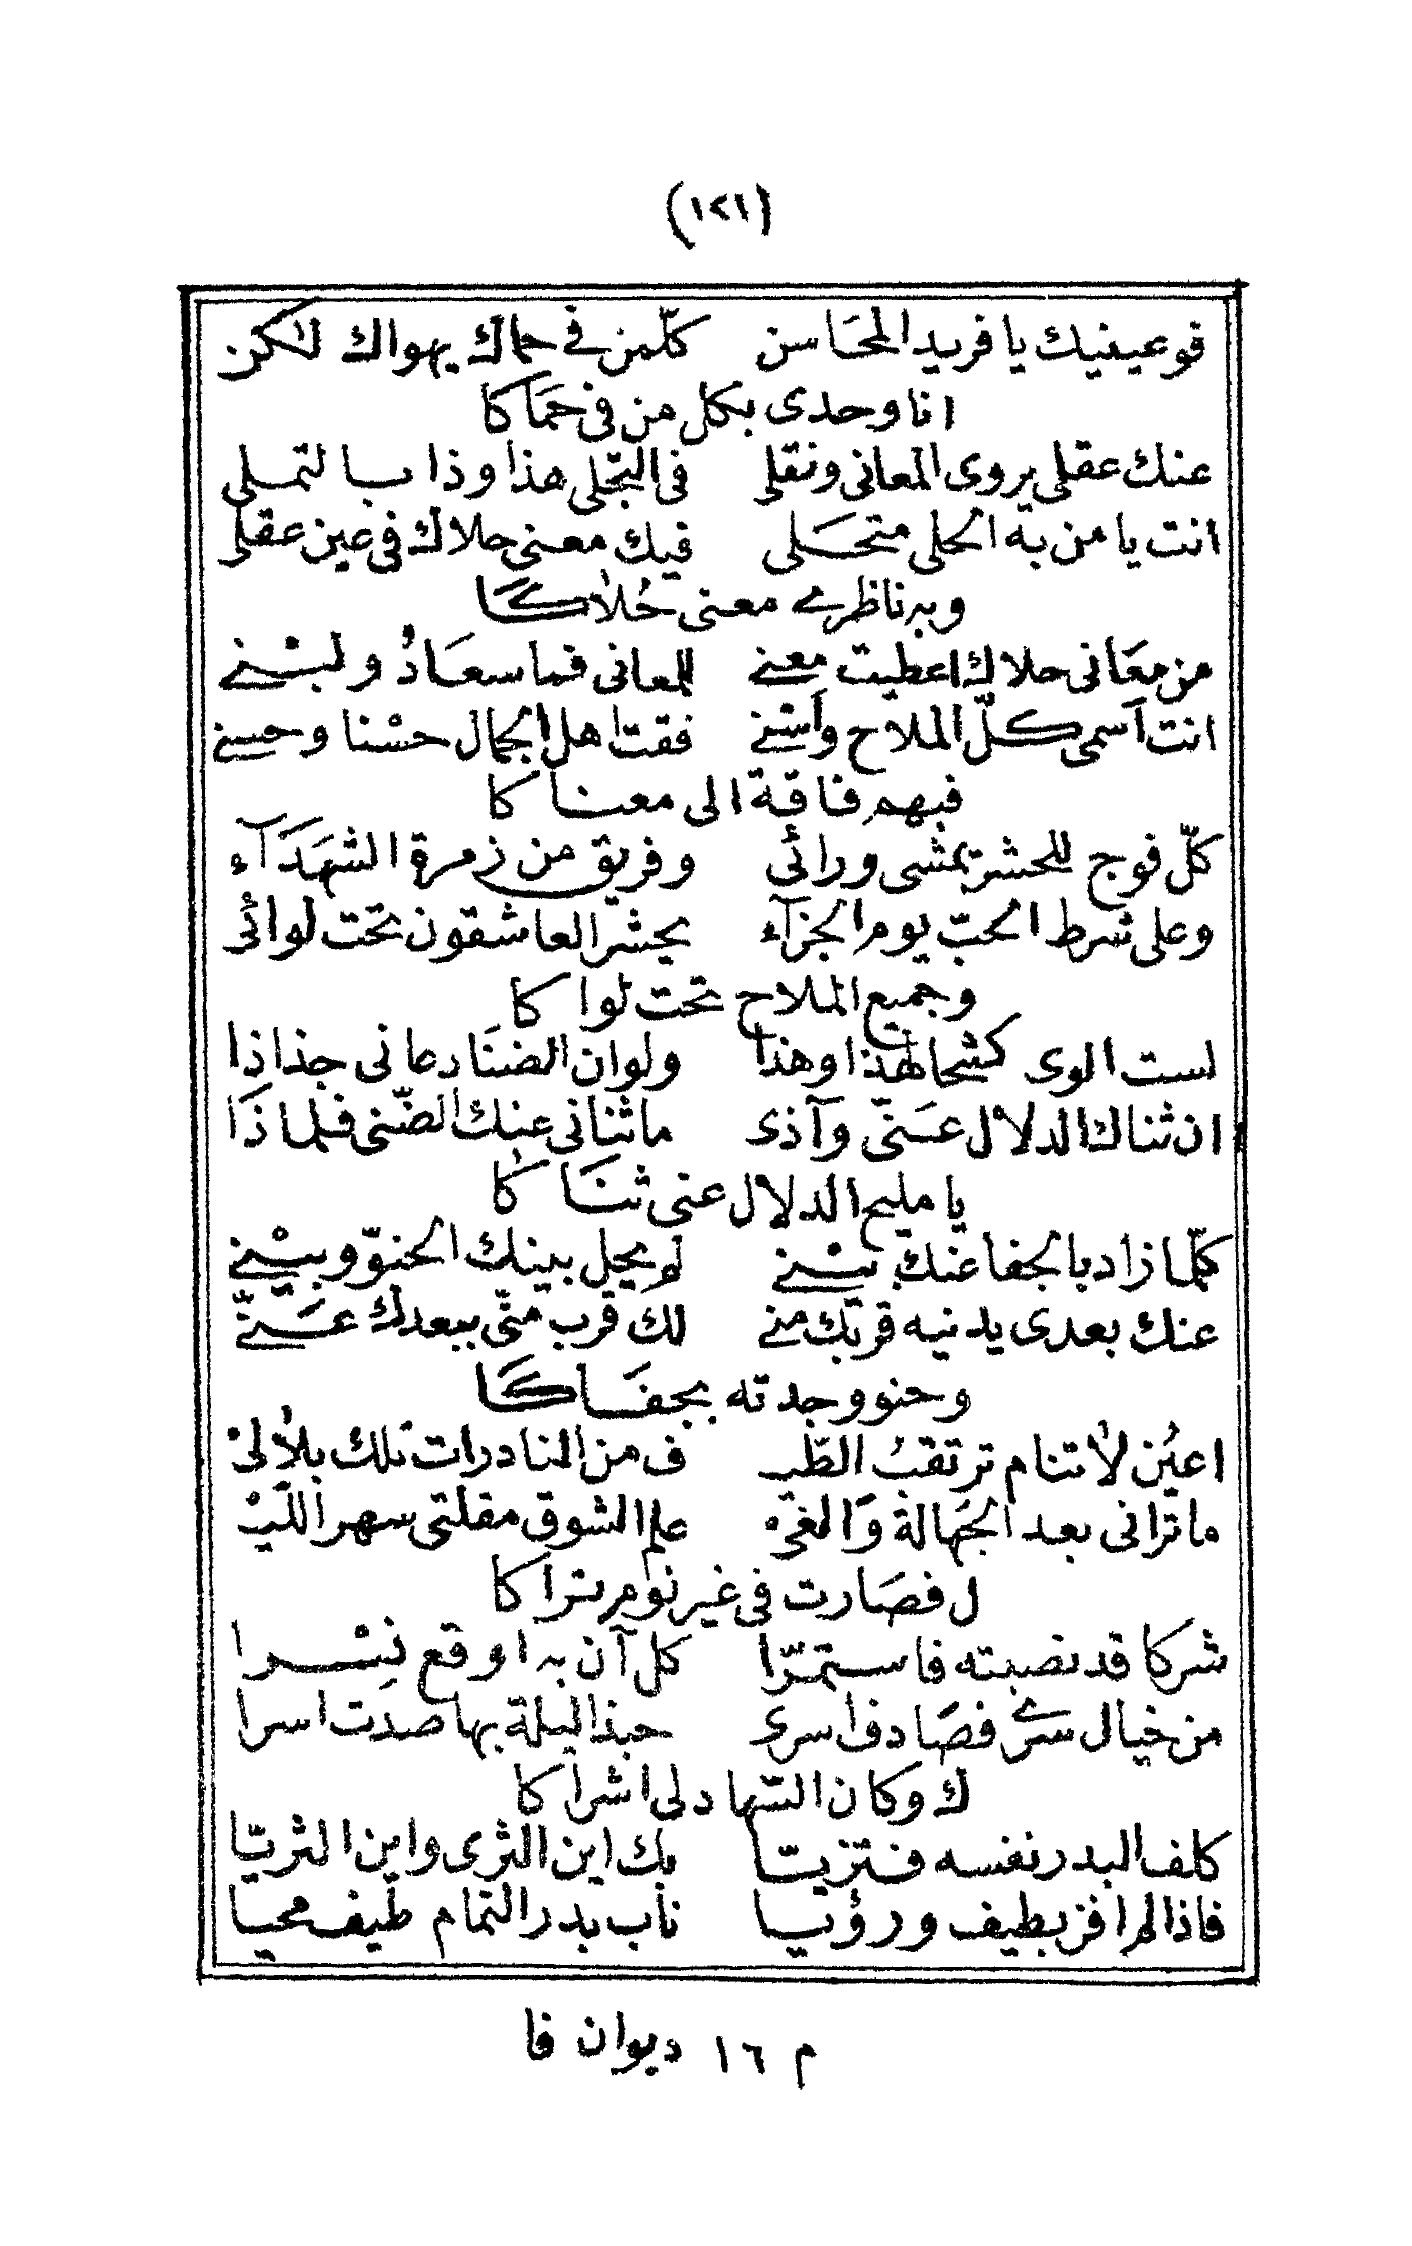 (١٢١)
قوعينيك يا فريد المحَاسن كلّمن فى حماك يهواك لٰكن
انا وحدى بكل من فى حمَاكا
عنك عقلى يروى المعانى ونقلى فى التجّلى هذا وذا بالتملى
انت يا من به الحلى متحَلى فيك معنى حلاك فى عين عقلى
وبه ناظرى معنى حُلاكَا
من معَانى حلاك اعطيت معنى للمعانى فما سعَادُ ولبْنى
انت اَسمى كلّ الملاح وَاسْنى فقت اهل الجمال حسْنا وحسنى
فبهم فاقة الى معناكا
كلّ فوج للحشر تمشى ورائى وفريق من زمرة الشهَدَآء
وعلى شرط الحبّ يوم الجزآء يحشر العاشقون تحت لوائى
وجميع الملاح تحت لواكا
لست الوى كشحا لهٰذا وهذا ولو ان الضنَا دعانى جذاذا
ان ثناك الدلال عَنّى وآذى ما ثنانى عنك الضّنى فلماذَا
يا مليح الدلال عنى ثنَاكا
كلّما زاد بالجفا عنك بيْنى لم يحل بينك الحنوّ وبيْنى
عنك بعدى يدنيه قربك منى لك قرب منّى ببعدك عَنّى
وحنو وجدته بجفَاكَا
اعيُن لاٰ تنام ترتقبُ الطّيـ ف من النادرات تلك بلاٰلىْ
ما ترانى بعد الجهَالة وَالغىّ علم الشوق مقلتى سهر اللّيْـ
ل فصَارت فى غير نوم تراكا
شركا قد نصبته فاستمرّا كل آن به اوقع نسْرا
من خيال سرى فصَادف اسرى حبذا ليلة بها صدت اسرا
ك وكان السّهاد لى اشراكا
كلف البدر نفسه فتزيّا بك اين الثرى واين الثريّا
فاذا لم افز بطيف ورؤيا ناب بدر التمام طيف محيا
م ١٦ ديوان فا